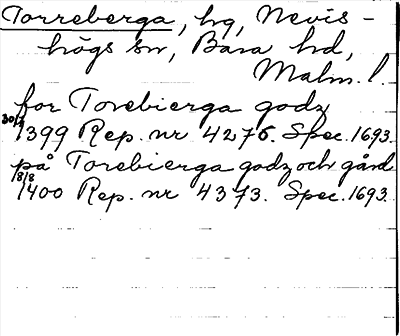 Torreberga, hg, Nevis-
högs sn, Bara hd,
Malm. l.
for Torebierga godz
30/9 1399 Rep. nr 4276. Spec. 1693.
på Torebierga godz och gård
18/8 1400 Rep. nr 4373. Spec. 1693.